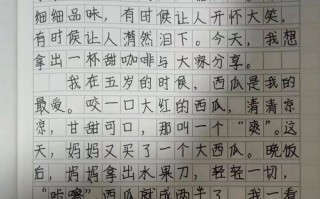 细细品味，有时候让人开怀大笑，
有时候让人潸然泪下。今天，我想
拿出一杯甜咖啡与大家分享。
我在五岁的时候，西瓜是我的
最爱。咬一口大红的西瓜，清清凉
凉，甘甜可口，那叫一个“爽”。这
天，妈妈又买了一个大西瓜。晚饭
后，妈妈拿出水果刀，轻轻一切，
“咔嚓”西瓜就成两半了，我一看